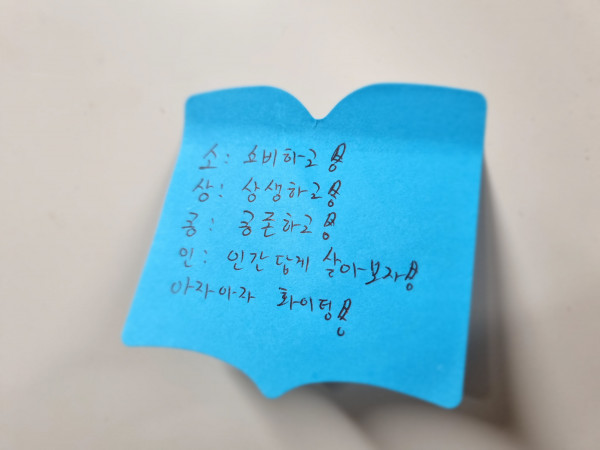 소: 소비하고!
상: 상생하고!
공: 공존하고!
인: 인간답게 살아보자!
아자아자 화이팅!